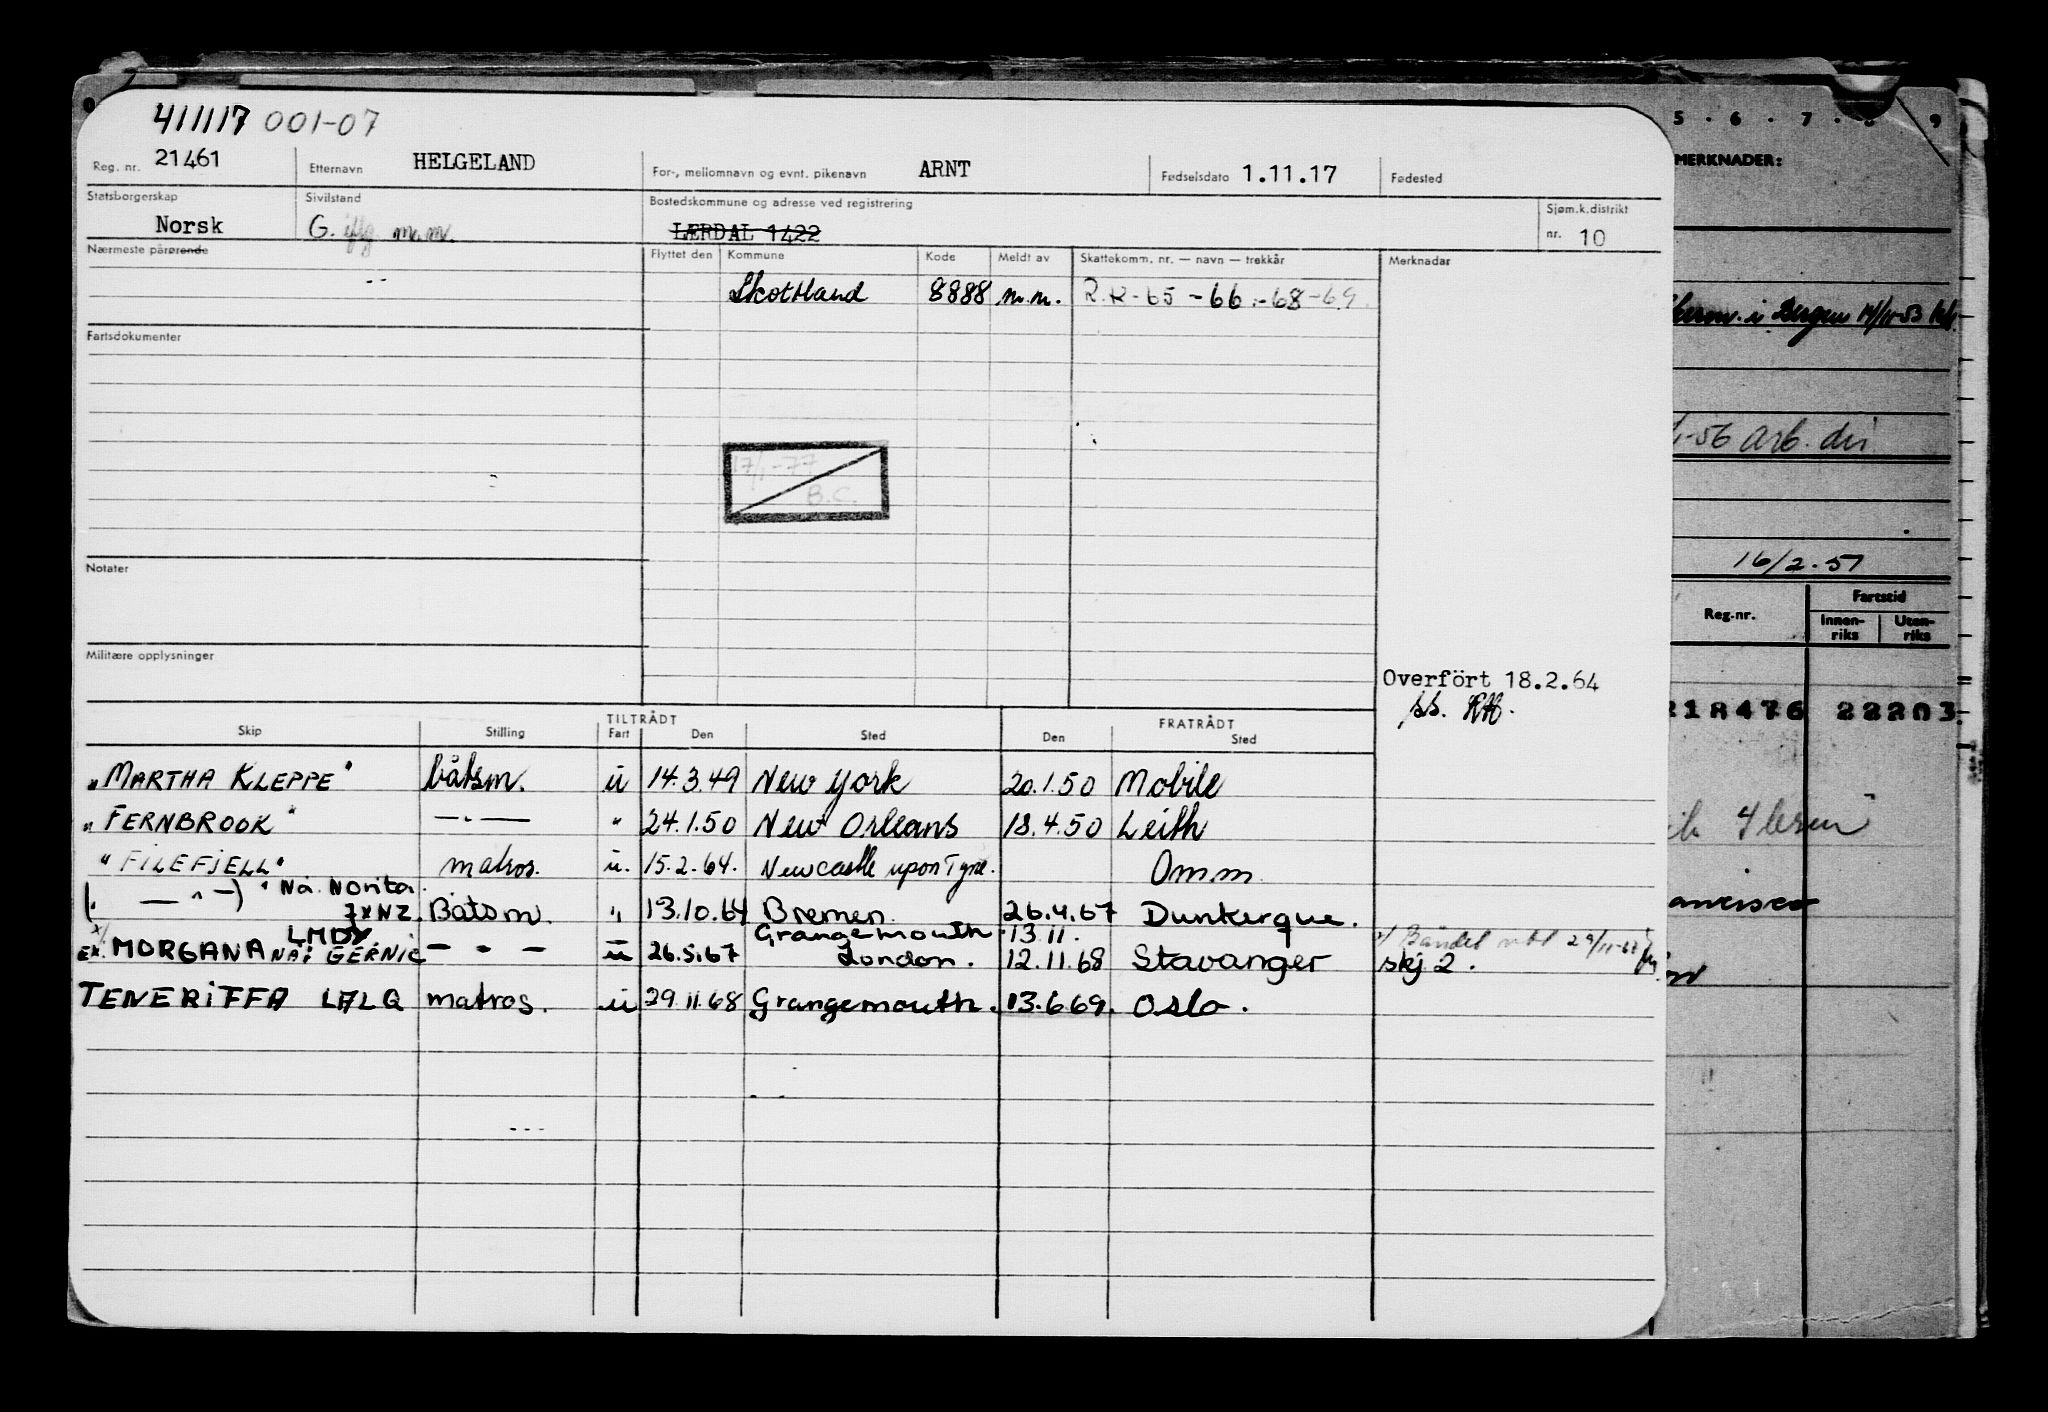 411117 001-07
Reg. nr. 21461 Etternavn HELGELAND For-, mellomnavn og evnt. pikenavn ARNT Fødselsdato 1.11.17 Fødested
Statsborgerskap Norsk Sivilstand G. iflg m.m. Bostedskommune og adresse ved registrering LÆRDAL 1422 Sjøm.k.distrikt nr. 10
Nærmeste pårørende Flyttet den Kommune Kode Meldt av Skattekomm. nr. — navn — trekkår Merknadar
Skottland 8888 m.m. R.K-65 -66 -68-69.
Fartsdokumenter
17/1-77
B.C.
Notater
Militære opplysninger
Overført 18.2.64
ss.
TILTRÅDT FRATRÅDT
Skip Stilling Fart Den Sted Den Sted
"MARTHA KLEPPE" båtsm. u 14.3.49 New York 20.1.50 Mobile
"FERNBROOK" —"— " 24.1.50 New Orleans 18.4.50 Leith
"FILEFJELL" matros. u. 15.2.64. Newcastle upon Tyne. Omm
(— " —) " Nå. Norita. JXNZ Båtsm. " 13.10.64 Bremen. 26.4.67 Dunkerque.
x/ ex. MORGANA LMDY NÅ: GERNIC — " — u 26.5.67 Grangemouth London. 13.11. 12.11.68 Stavanger skj 2.
29/11-67
TENERIFFA LALQ matros. u 29.11.68 Grangemouth. 13.6.69. Oslo.
5 · 6 · 7 · 8 · 9
MERKNADER:
i Bergen
-56 arb. dir.
16/2-51
Reg.nr. Fartstid
Innen-riks Uten-riks
218476 22203
ancisco